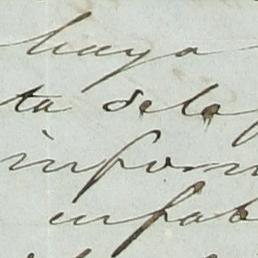 haya
ta dele
inform
infat